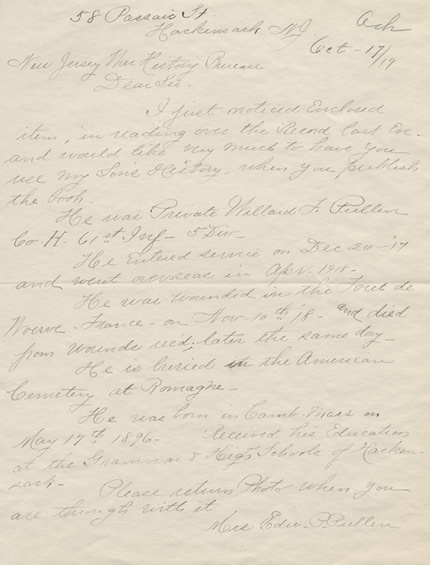 58 Passaic St
Hackensack N.J. Ack
Oct - 17/19
New Jersey War History Bureau
Dear Sir -
I just noticed Enclosed
item, in reading over the Record last Eve -
and would like very much to have you
use my Sons History, when you publish
the book.
He was Private Willard F. Pullen
Co. H. 61st Inf - 5 Div -
He Entered service on Dec 20 - 17
and went overseas in Apr. 1918 -
He was wounded in the Foret de
Woevre - France - on Nov 10th 18 - and died
from wounds recd; later the same day -
He is buried in the American
Cemetery at Romagne -
He was born in Camb. Mass on
May 17th 1896 - Received his Education
at the Grammar & High Schools of Hacken-
sack -
Please return Photo when you
are through with it
Mrs Edw. P. Pullen